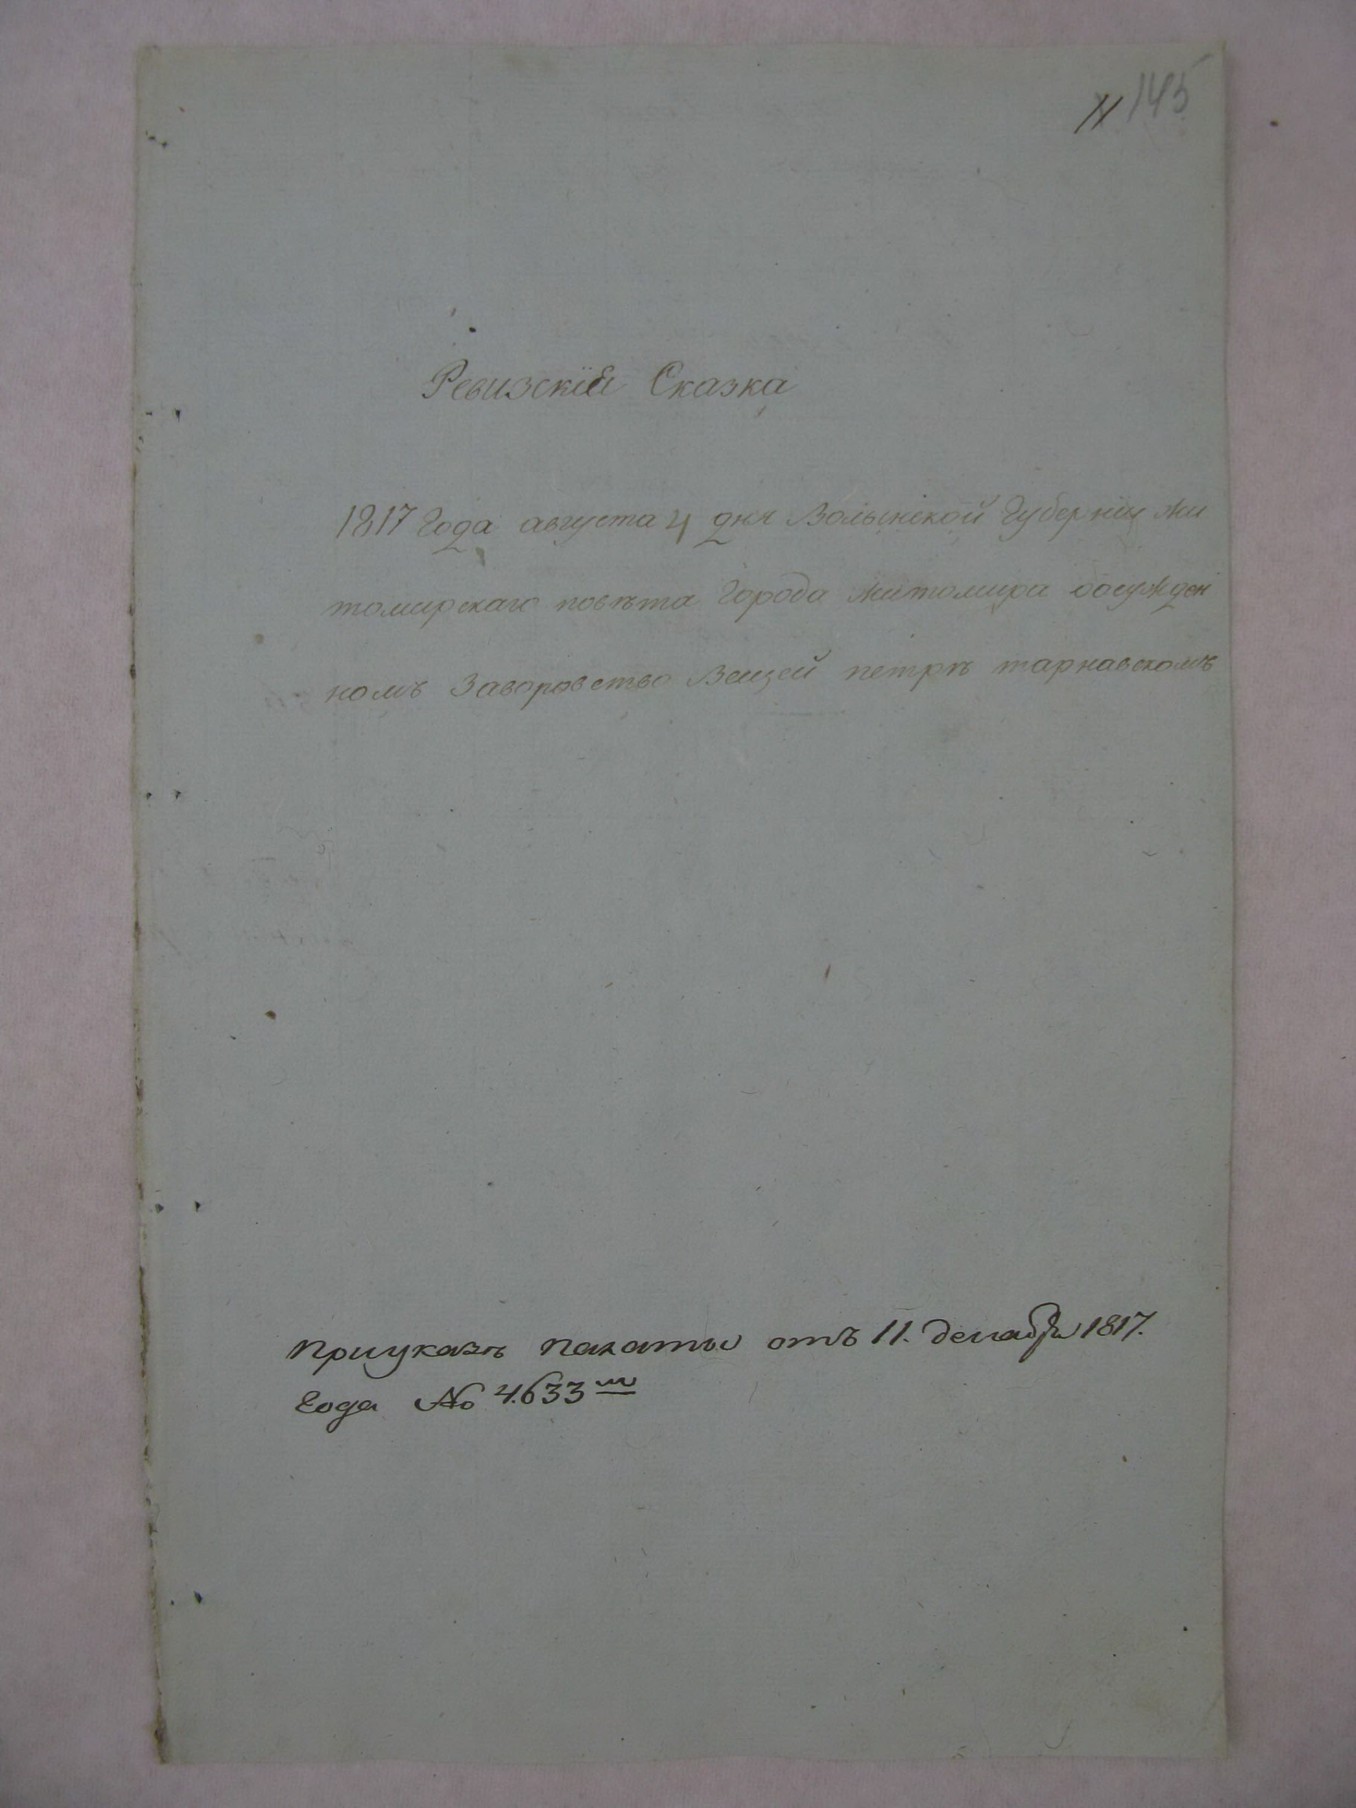 145
Ревизскiя Сказка
1817 Года августа 4 дня Волынской Губернiи Жи
томирскаго повѣта Города Житомира обосужден
номъ Заворовство Вещей петрѣ тарнавскомъ
приуказѣ палаты отъ 11. декабря 1817.
Года № 4.633 ᵐ